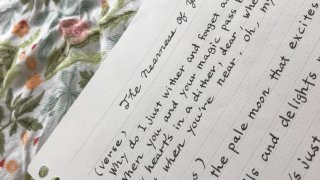 The nearness of
(verse)
Why do I just wither and forget
when you and your magic pass
heart's in a dither, dear,
when you're near, oh, my
the pale moon that excites
and delights
just